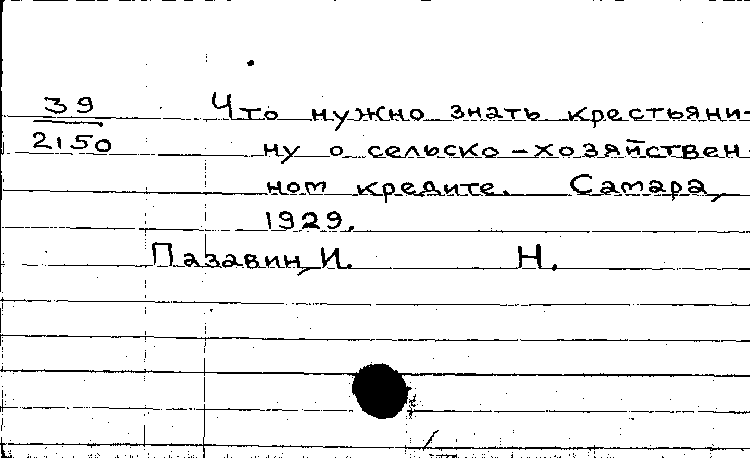 39 Что нужно знать крестьяни-
2150 ну о сельско-хозяйствен-
ном кредите. Самара,
1929.
Пазавин, И. Н.